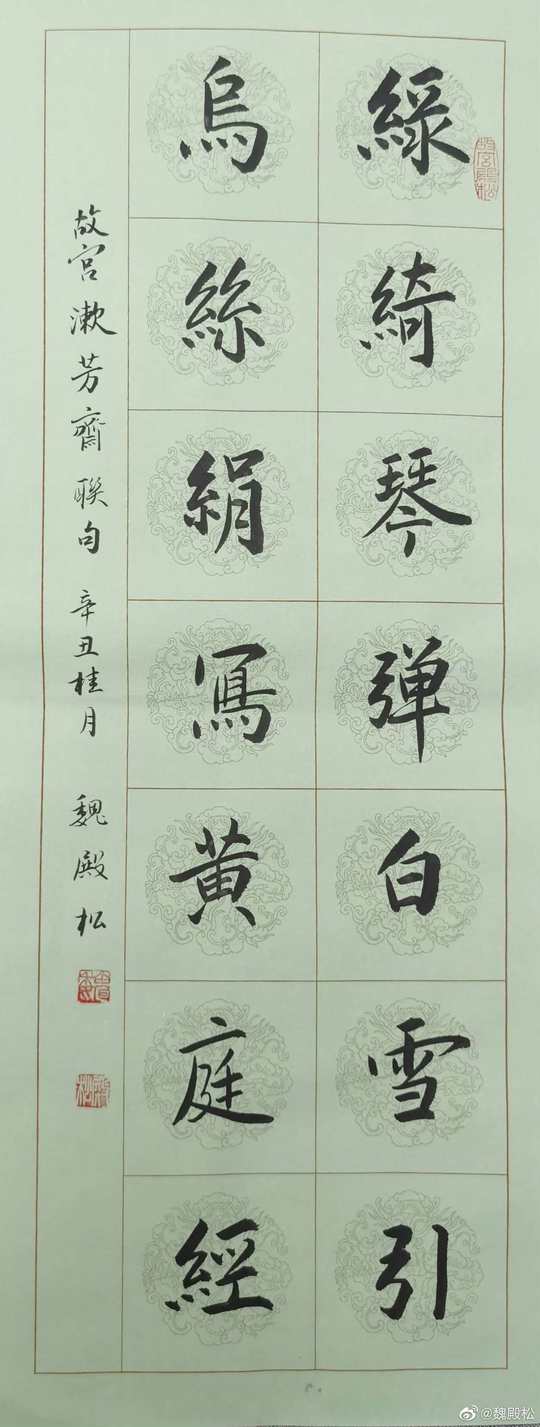 綠綺琴弹白雪引
烏絲絹寫黄庭經
故宫漱芳齋聯句 辛丑桂月 魏殿松
@魏殿松